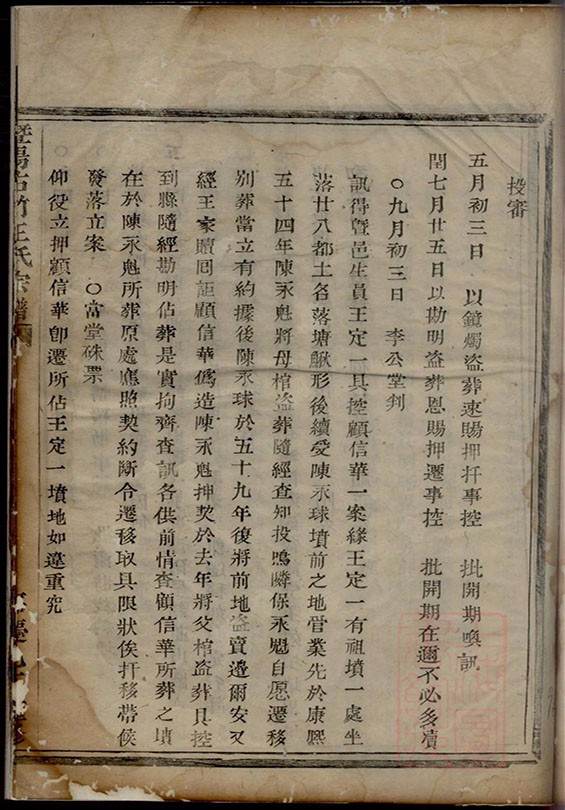 投審
五月初三日 以鏡燭盜葬速賜押扦事控 批開期喚訊
閏七月廿五日以勘明盜葬恩賜押遷事控 批開期在邇不必多瀆
○九月初三日 李公堂判
訊得暨邑生員王定一具控顧信華一案緣王定一有祖墳一處坐
落廿八都土名落塘畈形後續受陳永球墳前之地管業先於康熙
五十四年陳永魁將母棺盜葬隨經查知投鳴隣保永魁自愿遷移
別葬當立有約據後陳永球於五十九年復將前地盜賣邉爾安又
經王家贖囘詎顧信華僞造陳永魁押契於去年將父棺盜葬具控
到縣隨經勘明佔葬是實拘齊查訊各供前情查顧信華所葬之墳
在於陳永魁所葬原處應照契約斷令遷移取具限狀俟扦移帶候
發落立案 ○當堂硃票
仰役立押顧信華卽遷所佔王定一墳地如違重究
暨陽古竹王氏宗譜